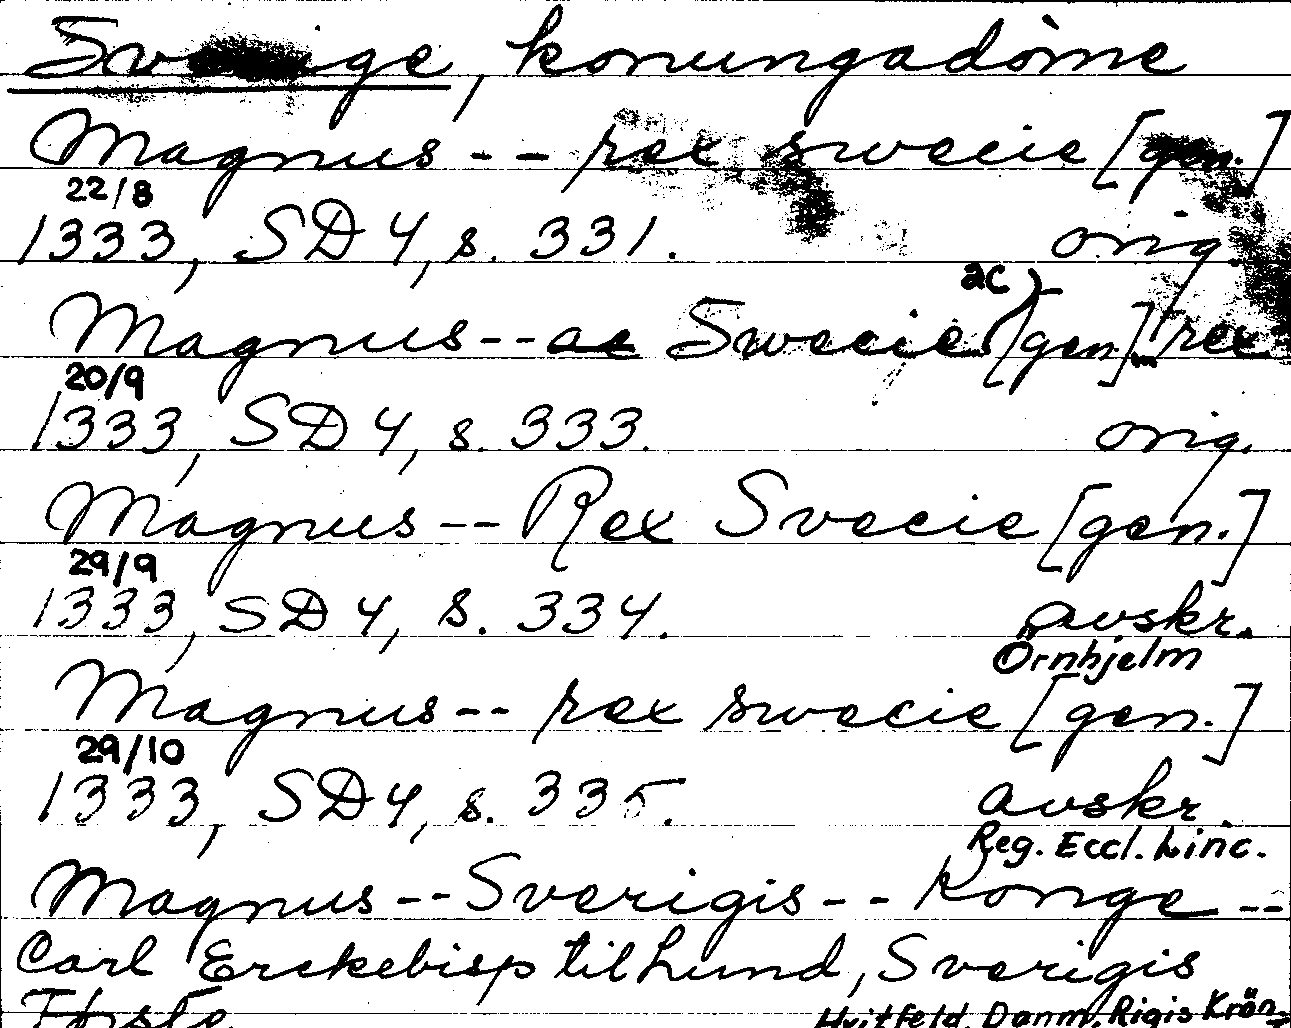 Sverige, konungadöme
Magnus -- rex swecie [gen.]
22/8
1333, SD 4, s. 331. orig.
ac
Magnus -- ac Swecie [gen.] rex
20/9
1333, SD 4, s. 333. orig.
Magnus -- Rex Svecie [gen.]
29/9
1333, SD 4, s. 334. avskr.
Örnhjelm
Magnus -- rex swecie [gen.]
29/10
1333, SD 4, s. 335. avskr.
Reg. Eccl. Linc.
Magnus -- Sverigis -- Konge --
Carl Erckebisp til Lund, Sverigis
Første Hvitfeld, Danm. Rigis Krön.